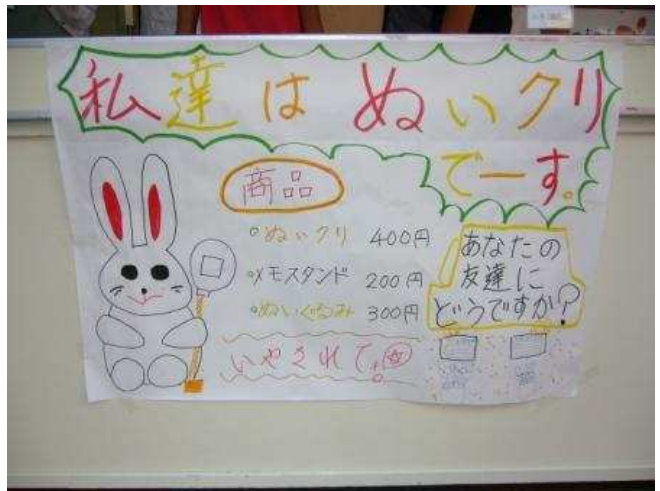 私達はぬいクリ
でーす。
商品
ぬいクリ 400円
メモスタンド 200円
ぬいぐるみ 300円
いやされて。
あなたの
友達に
どうですか?